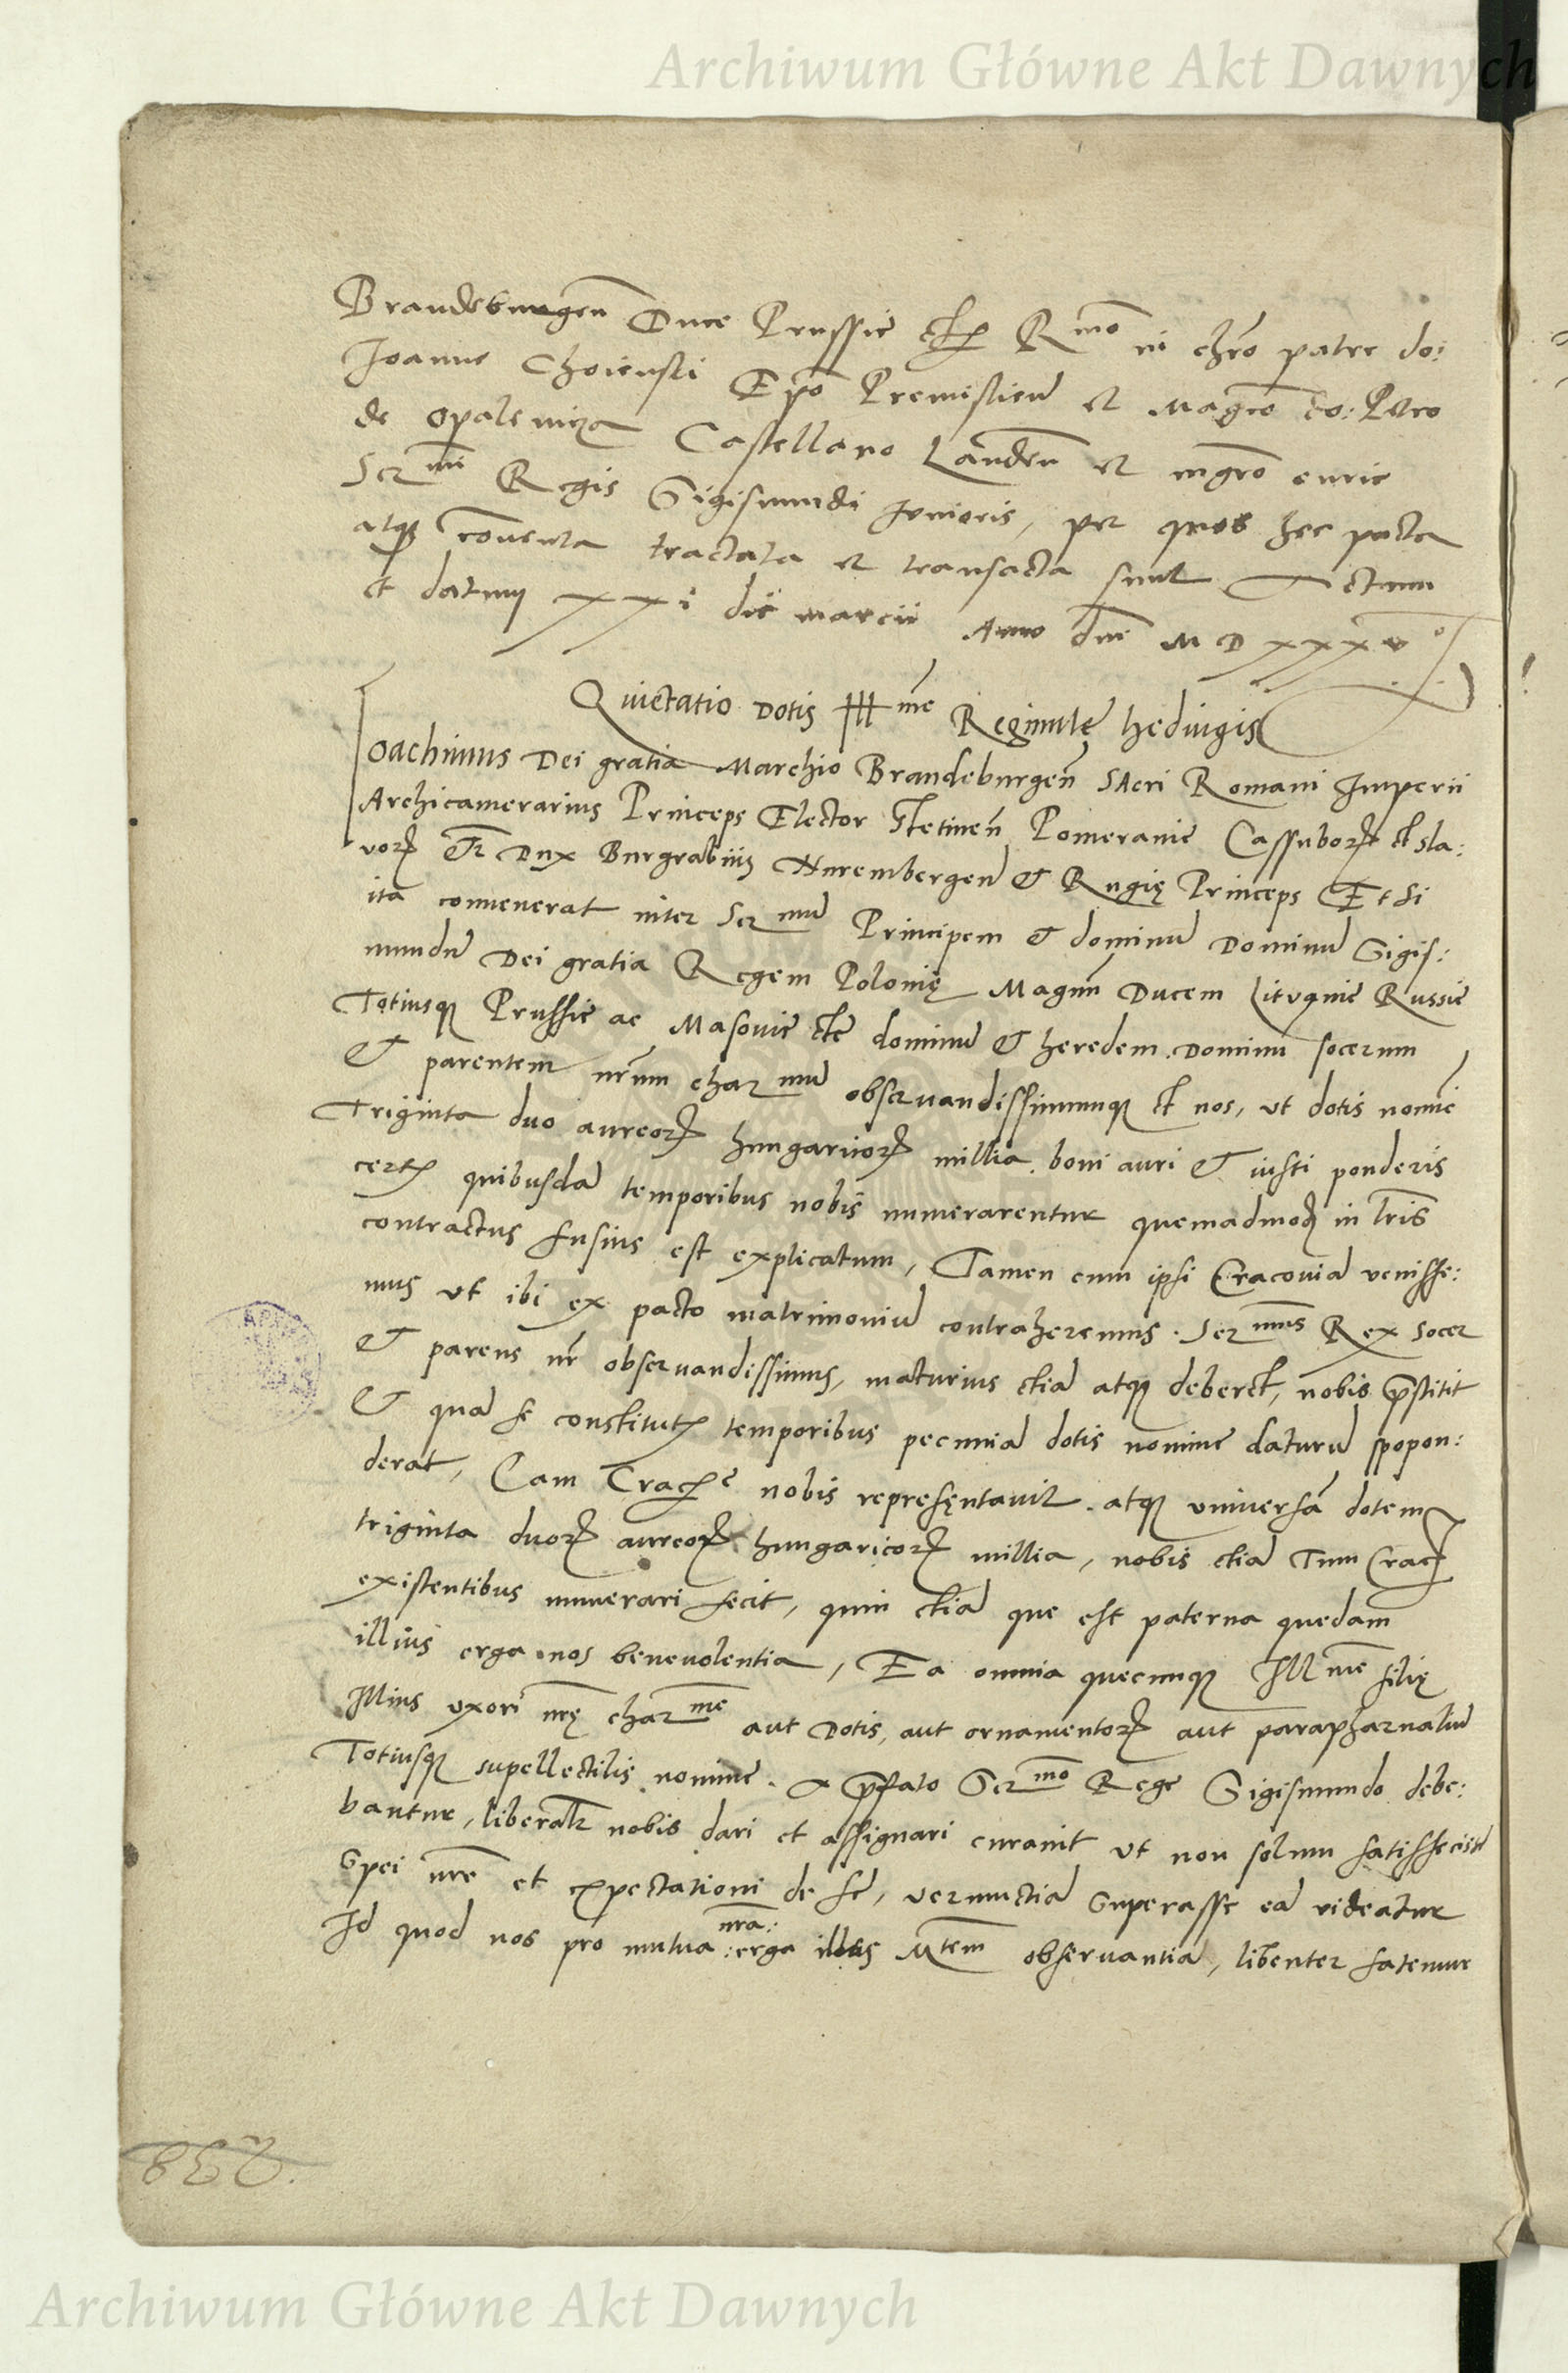 Archiwum Główne Akt Dawnych
Brandeburgeñ Duce Prussie etc Rmo in chro patre do:
Joanne Choienski Epo Premislieñ et Magco do: Petro
de Opalenicza Castellano Landeñ et mgro curie
Sermi Regis Sigismundi Junioris, per quos hec pacta
atqꝫ conventa tractata et transacta sunt Actum
et datum XXi die marcii Anno dni M D XXXVo
Quietatio Dotis Illme Reginule Hedvigis
Joachimus Dei gratia Marchio Brandeburgeñ Sacri Romani Imperii
Archicamerarius Princeps Elector Stetineñ Pomeranie Cassuborꝝ et Sla:
vorꝝ etc Dux Burgrabius Nurembergeñ & Rugię Princeps Etsi
ita convenerat inter Sermū Principem & dominū Dominū Sigis:
mundū Dei gratia Regem Polonię Magnū Ducem Lituanie Russie
Totiusqꝫ Prussie ac Masovie etc dominū & heredem Dominū socerum
& parentem nrm charmū observandissimumqꝫ et nos, ut dotis nomine
Triginta duo aureorꝝ hungaricorꝝ millia boni auri & iusti ponderis
certis quibusdā temporibus nobis numerarentur quemadmodū in lris
contractus fusius est explicatum, Tamen cum ipsi Cracoviā venisse:
mus ut ibi ex pacto matrimoniū contraheremus. Sermus Rex socer
& parens nr observandissimus, maturius etiā atqꝫ deberet, nobis p̄stitit
& quā se constitutis temporibus pecuniā dotis nomine daturū spopon:
derat, Eam Crac̄e nobis representavit. atqꝫ universā dotem
triginta duorꝝ aureorꝝ hungaricorꝝ millia, nobis etiā Tum Crac
existentibus numerari fecit, quin etiā que est paterna quedam
illius erga nos benevolentia, Ea omnia quecunqꝫ Illme filię
Illius uxori nrę charme aut Dotis, aut ornamentorꝝ aut parapharnaliū
Totiusqꝫ supellectilis nomine. A p̄fato Sermo Rege Sigismundo debe:
bantur, liberalr nobis dari et assignari curavit ut non solum satisfecisse
Spei nre et expectationi de se, verumetiā Superasse eā videatur
Id quod nos pro mutua nra: :erga illius Mtem observantiā, libenter fatemur
238
Archiwum Główne Akt Dawnych